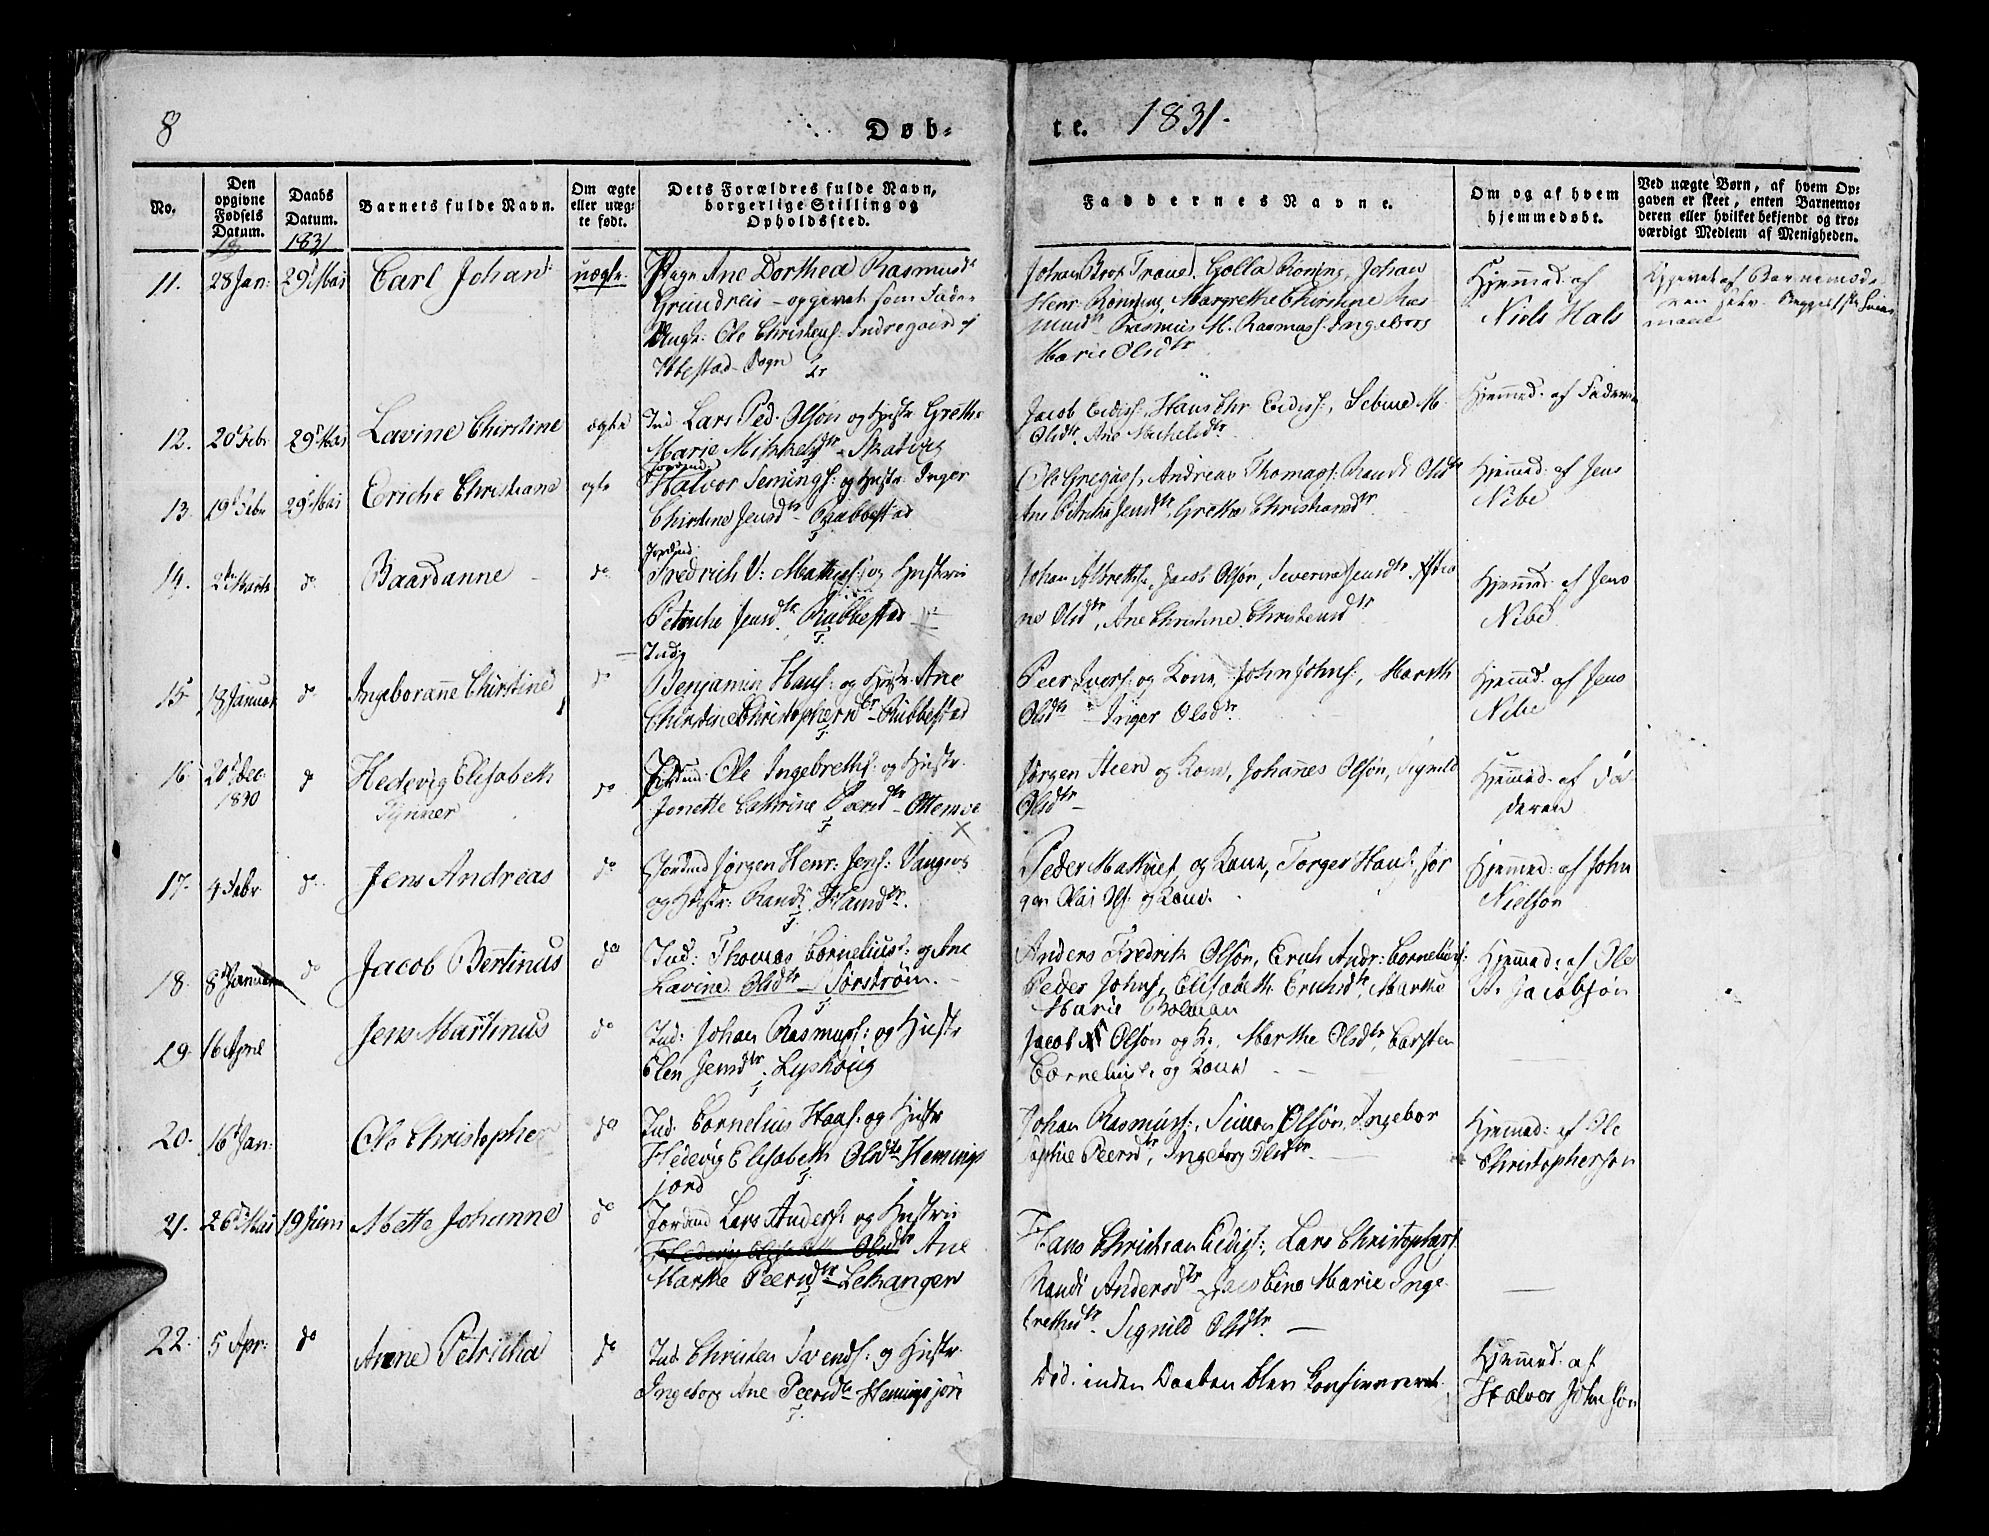 8
Døb-
te. 1831.
No.
Den opgivne Fødsels Datum.
18
Daabs Datum.
1831
Barnets fulde Navn.
Om ægte eller uægte født.
Dets Forældres fulde Navn, borgerlige Stilling og Opholdssted.
Faddernes Navne.
Om og af hvem hjemmedøbt.
Ved uægte Børn, af hvem Opgaven er skeet, enten Barnemoderen eller hvilket bekjendt og troværdigt Medlem af Menigheden.
11. 28 Jan: 29 Mai Carl Johan uægte.
Pige Ane Dorthea Rasmusdtr
Grundreis - opgivet som Fader
Ungk: Ole Christens: Indregaard af
Ibbestad Sogn
Johan Trane, Rønning, Johan
Henr: Rønning, Margrethe Christine Ras
musdtr Rasmus M. Rasmuss: Ingeborg
Marie Olsdtr
Hjemmed: af
Niels Hals
Opgivet af Barnemode
12. 20 Febr 29 Mai Lavine Christine ægte
Ind: Lars Ped. Olsøn og Hustr Grethe
Marie Mikkelsdtr - Skatvig
Jacob Eidiss, Hans Chr Eidiss:, Sebine M.
Olsdtr, Ane Michelsdtr
Hjemmed: af Faderen
13. 19 Febr 29 Mai Eriche Christiane ægte
Jordind:
Halvor Hemings: og Hustr Inger
Christine Jensdtr - Rubbestad
Ole Gregüss, Andreas Thomass: Randi Olsdtr
Ane Petricha Jensdtr, Grethe Christiansdtr
Hjemmed: af Jens
Nibe
14. 2 Marts do Baardanne do
Jordind:
Fredrich V: Mathis: og Hustrue
Petriche Jensdtr Rubbestad
Johan Albrethss, Jacob Olsøn, Severine Jensdtr,
ne Olsdtr, Ane Christine Christensdtr
Hjemmed: af Jens
Nibe
15 18 Januar do Ingeboranne Christine do
Ind:
Benjamin Hans: og Hustr Ane
Christine Christophersdtr - Rubbestad
Peer Ivers: og Kone, John Johns:, Mareth
Olsdtr - Inger Olsdtr
Hjemmed: af Jens
Nibe
16 20 Dec: 1830 do Hedevig Elisabeth
Tynner do
Jordind: Ole Ingebreths: og Hustr.
Jonette Cathrine Peersdtr - Ottemoe
Jørgen Steen og Kone, Johannes Olsøn, Signild
Olsdtr -
Hjemmed: af Fa
deren
17. 4 Febr do Jens Andreas do
Jordind Jørgen Henr: Jens: Vangevig
og Hustr: Randi Hansdtr.
Peder Mathies og Kone, Torger Hans: Jør
gen Olai Ols: og Kone.
Hjemmed: af John
Nielsøn
18. 8 Januar do Jacob Bertinus do
Ind: Thomas Cornelius: og Ane
Lavine Olsdtr - Sørstrøm.
Anders Fredrik Olsøn, Erich Andr: Cornelius:
Peder Johns, Elisabeth Erichsdtr, Marthe
Marie Bolman
Hjemmed: af Ole
A. Jacobsøn
19. 16 April Jens Martinus do
Ind: Johan Rasmus: og Hustr
Elen Jensdtr. Lyshoug
Jacob Olsøn og K:, Marthe Olsdtr, Carsten
Cornelius: og Kone
20. 16 Jan: Ole Christopher do
Ind: Cornelius Hans: og Hustr
Hedevig Elisabeth Olsdtr Hemings
jord
Johan Rasmuss:, Simon Olsøn, Ingebor
Sophie Peersdtr, Ingeborg Olsdtr
Hjemmed: af Ole
Christophersøn
21. 26 Mai 19 Juni Mette Johanne do
Jordind Lars Anders: og Hustrue
Hedevig Elisabeth Olsdtr Ane
Marthe Peersdtr Lekangen
Hans Christian Eidiss:, Lars Christophers
Randi Andersdtr - Jacobine Marie Inge-
brethsdtr. Signild Olsdtr. -
22. 5 Apr: do Anne Petricha do
Ind. Christen Svends: og Hustr.
Ingeborg Ane Peersdtr Hemingsjord
Død. inden Daaben blev Confirmeret
Hjemmed. af
Halvor Johnsøn